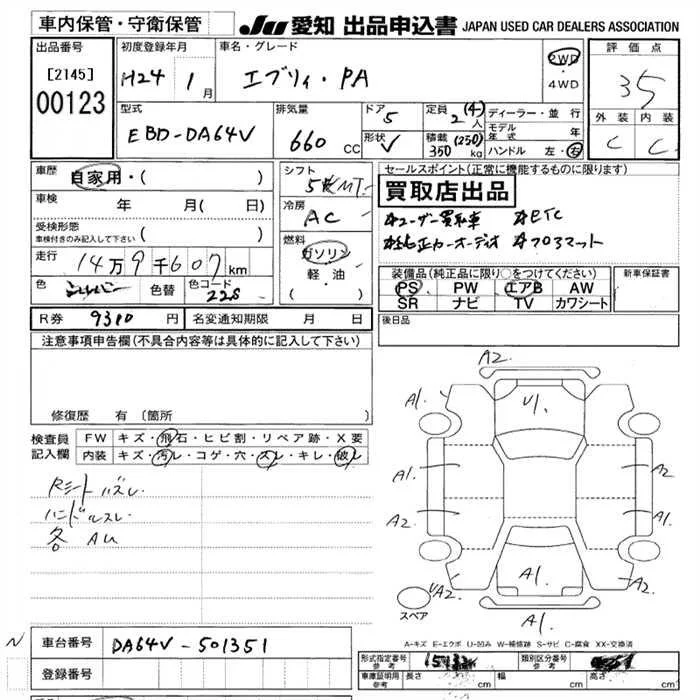 車内保管・守衛保管
JU 愛知 出品申込書 JAPAN USED CAR DEALERS ASSOCIATION
出品番号
[2145]
00123
初度登録年月
H24 1月
車名・グレード
エブリィ・PA
2WD・4WD
評価点
35
外装 内装
C C
型式
EBD-DA64V
排気量
660 CC
ドア 5
形状 V
定員 2(4)人
積載 350(250)kg
ディーラー・並行
モデル年式 年
ハンドル 左・右
車歴 自家用・( )
車検 年 月( 日)
受検形態
車検付きのみ記入して下さい( )
走行 14万9千607km
色 色替 色コード 22S
シフト 5速MT
冷房 AC
燃料
ガソリン
軽・油
( )
セールスポイント(正常に機能するものに限ります)
買取店出品
ユーザー買取車 ETC
純正カーオーディオ フロアマット
装備品(純正品に限り○をつけてください)
PS PW エアB AW
SR ナビ TV カワシート
新車保証書
R券 9310円 名変通知期限 月 日
後日品
注意事項申告欄(不具合内容等は具体的に記入して下さい)
修復歴 有(箇所
検査員記入欄
FW キズ・飛石・ヒビ割・リペア跡・X要
内装 キズ・汚レ・コゲ・穴・スレ・キレ・破レ
Rシートハズレ
ハンドルスレ
各 AU
A2
A1 U1 A1
A1 A2
A2 A1
UA2 A1 A2
A1
スペア
A-キズ E-エクボ U-凹み W-補修跡 S-サビ C-腐食 XX-交換済
N
車台番号 DA64V-501351
登録番号
形式指定番号 参考
類別区分番号 参考
車庫証明用 参考 長さ cm 幅 cm 高さ cm